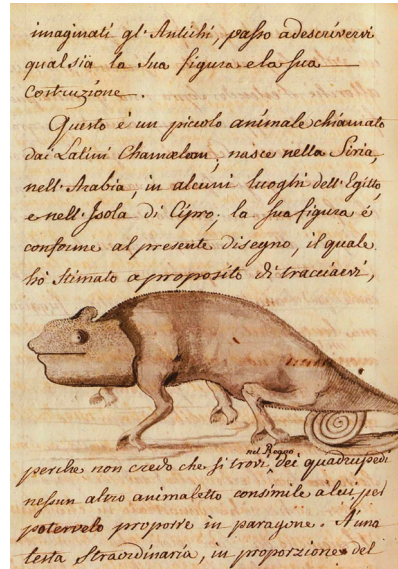 imaginati gl'Antichi, passo adescrivervi
qual sia la sua figura e la sua
costruzione.
Questo è un piccolo animale chiamato
dai Latini Chamæleon, nasce nella Siria,
nell'Arabia, in alcuni luoghi dell'Egitto,
e nell'Isola di Cipro; la sua figura é
conforme al presente disegno, il quale
hò stimato a proposito di tracciarvi,
nel Regno
perche non credo che si trovi dei quadrupedi
nessun altro animaletto consimile a lui per
potervelo proporre in paragone. A' una
testa straordinaria, in proporzione del